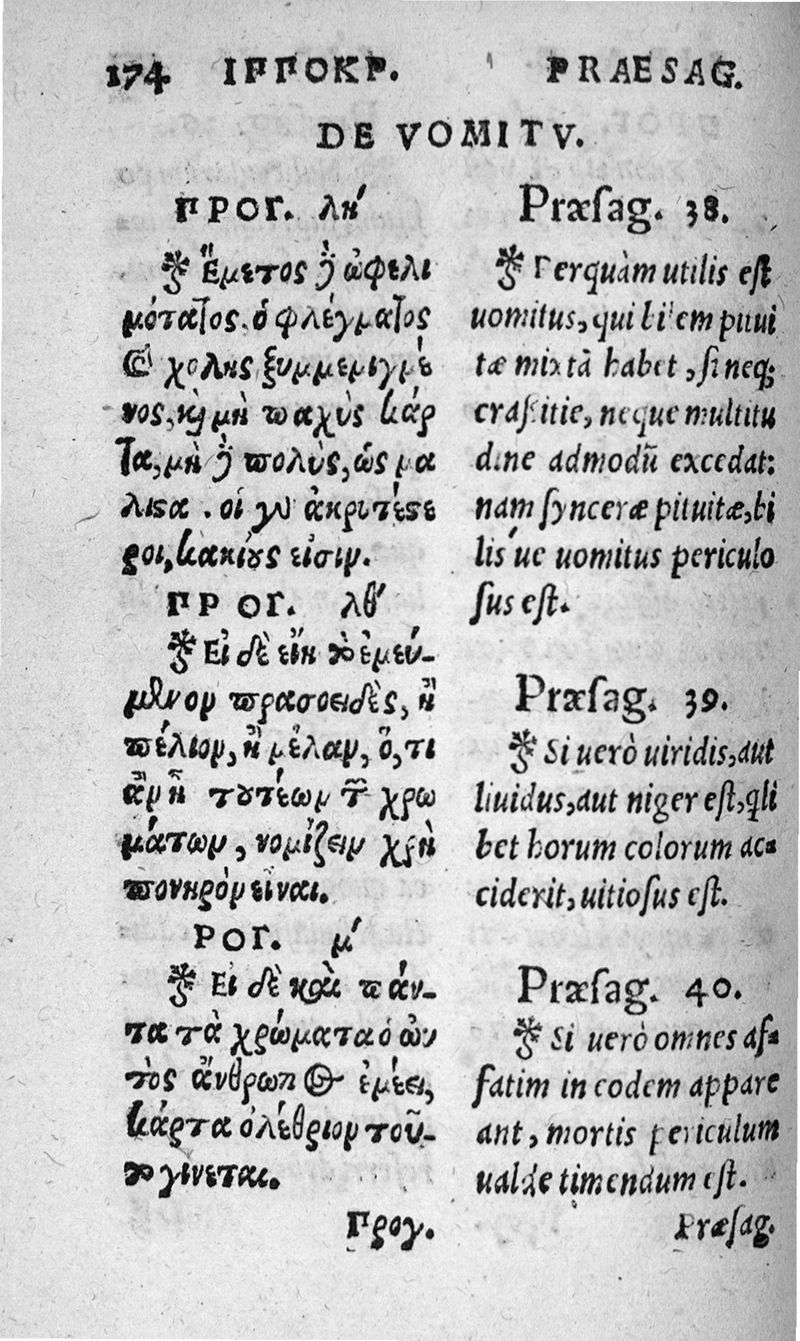 174 ΙΠΠΟΚΡ. PRAESAG.
DE VOMITV.
ΠΡΟΓ. λη′
※ Ἔμετος δ̓ ὠφελι
μότατος, ὁ φλέγματος
Καὶ χολῆς ξυμμεμιγμέ
νος, καὶ μὴ παχὺς κάρ
τα, μὴ δ̓ πολὺς, ὡς μα
λιϛα . οἱ γὰρ ἀκρητέϛε
ροι, κακίους εἰσιν.
ΠΡΟΓ. λθ′
※ Εἰ δὲ εἴη τὸ ἐμεύ-
μενον πρασοειδὲς, ἢ
πέλιον, ἢ μέλαν, ὅ, τι
ἂν ᾖ τουτέων τῶν χρω
μάτων, νομίζειν χρὴ
πονηρὸν εἶναι.
ΡΟΓ. μ′
※ Εἰ δὲ καὶ πάν-
τα τὰ χρώματα ὁ ὡυ
τὸς ἄνθρωπος ἐμέει,
κάρτα ὀλέθριον τοῦ-
το γίνεται.
Προγ.
Præſag. 38.
※ Perquàm utilis eſt
uomitus, qui bilem pitui
tæ mixtã habet, ſi neq;
craſſitie, neque multitu
dine admodũ excedat:
nam ſynceræ pituitæ, bi
lis ́ue uomitus periculo
ſus eſt.
Præſag. 39.
※ Si uerò uiridis, aut
liuidus, aut niger eſt, qli
bet horum colorum ac-
ciderit, uitioſus eſt.
Præſag. 40.
※ Si uerò omnes aſ-
fatim in eodem appare
ant, mortis periculum
ualde timendum eſt.
Præſag.